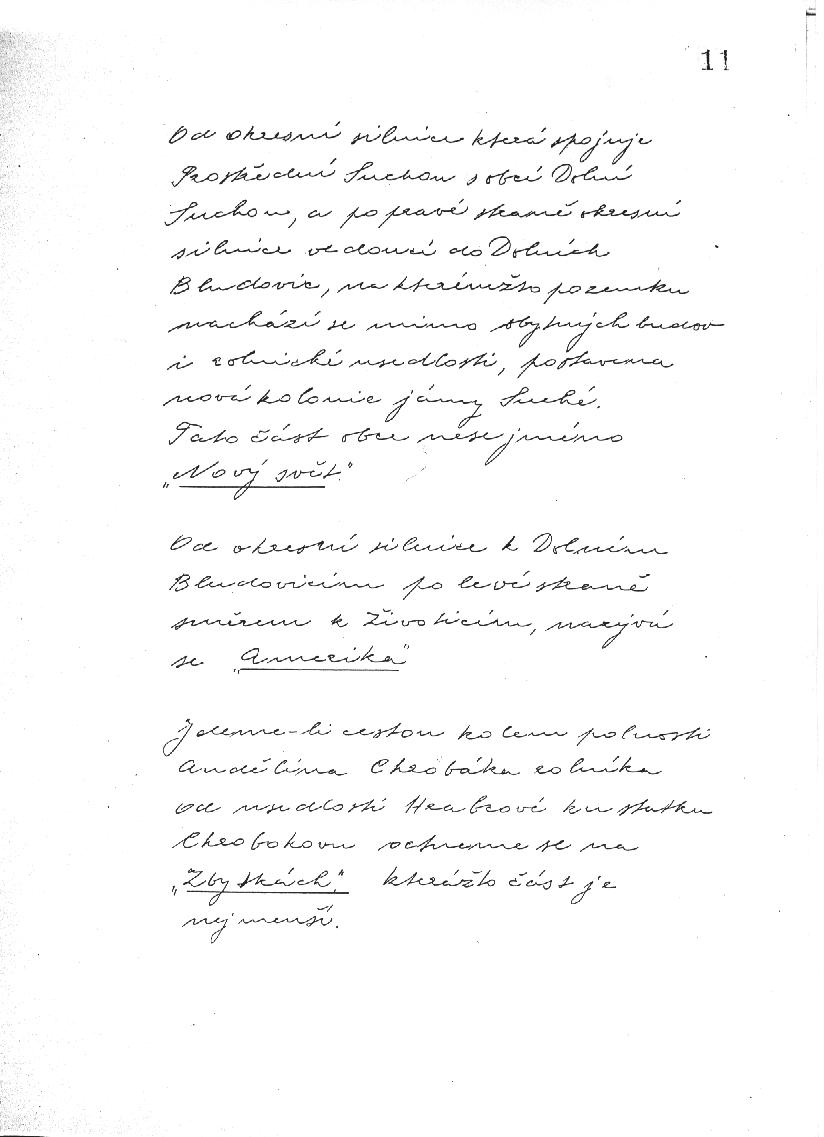 11
Od okresní silnice která spojuje
Prostřední Suchou s obcí Dolní
Suchou, a po pravé straně okresní
silnice vedoucí do Dolních
Bludovic, na kterémžto pozemku
nachází se mimo obytných budov
i rolnické usedlosti, postavena
nová kolonie jámy Suché.
Tato část obce nese jméno
„Nový svět."
Od okresní silnice k Dolním
Bludovicím po levé straně
směrem k Životicím, nazývá
se „Amerika"
Jdeme-li cestou kolem polnosti
Andělína Chrobáka rolníka
od usedlosti Hrabcové ku statku
Chrobokovu octneme se na
„Zbytkách", kterážto část je
nejmenší.